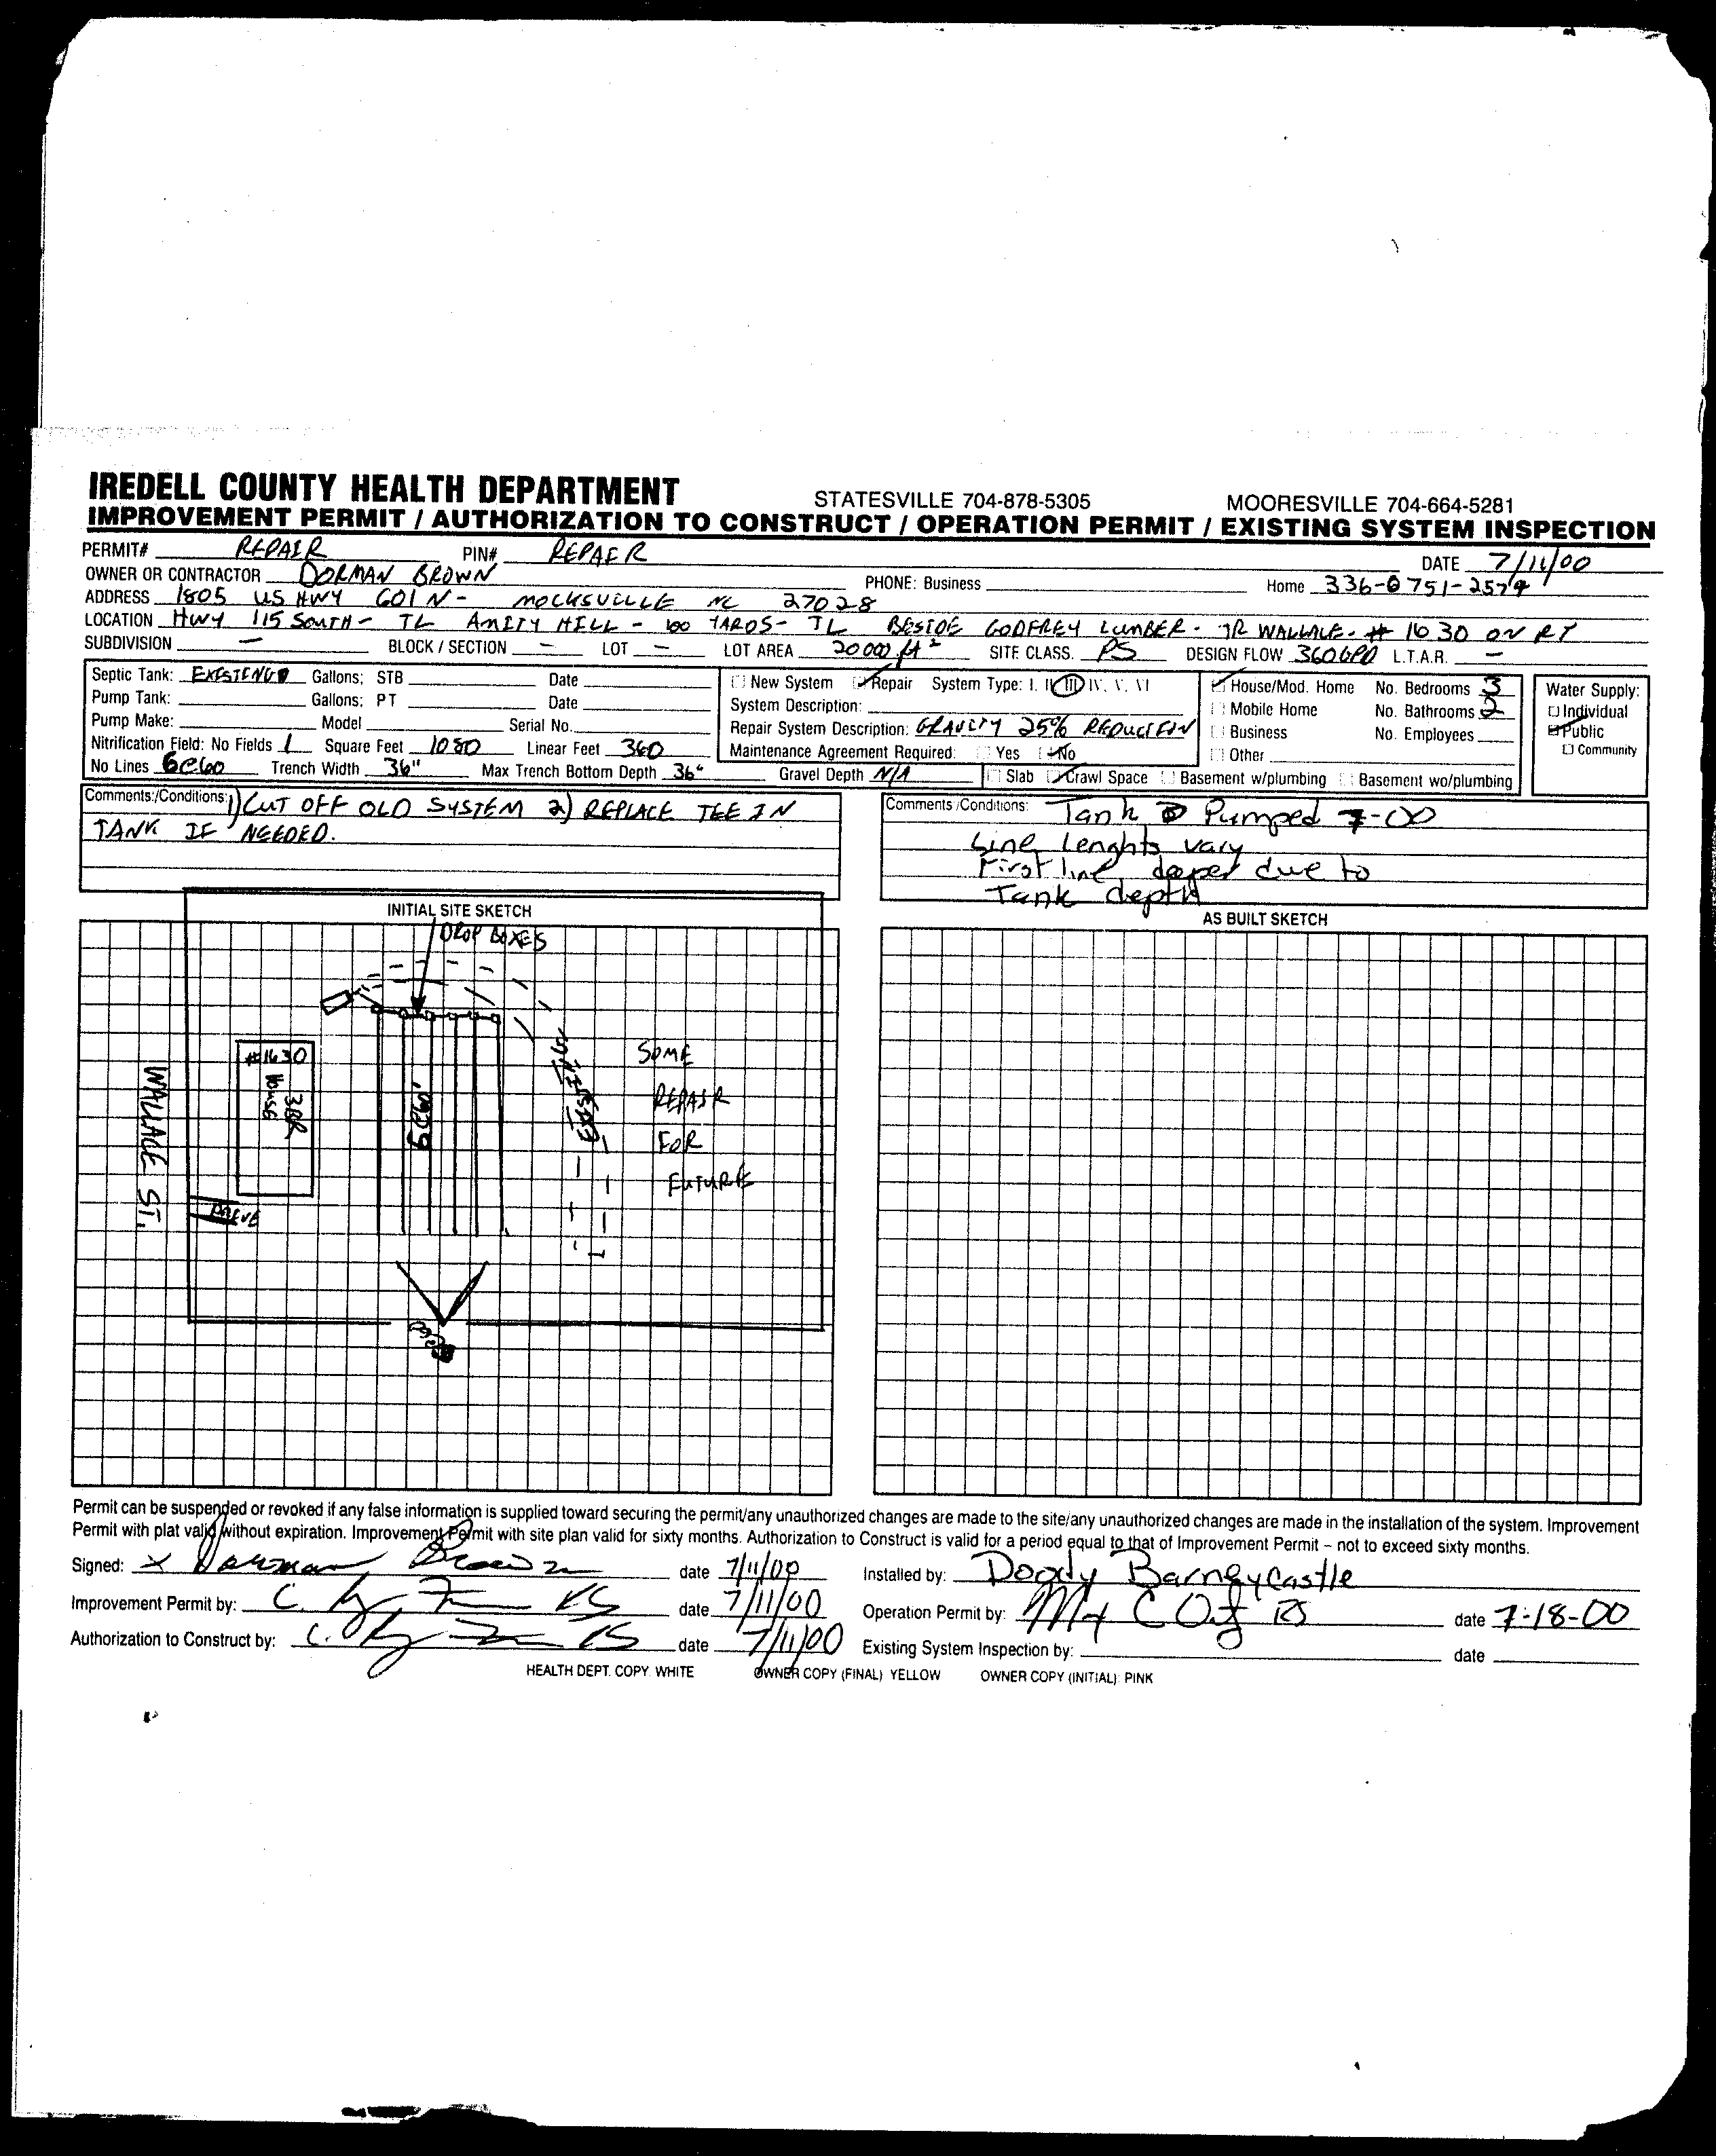 IREDELL COUNTY HEALTH DEPARTMENT STATESVILLE 704-878-5305 MOORESVILLE 704-664-5281
IMPROVEMENT PERMIT / AUTHORIZATION TO CONSTRUCT / OPERATION PERMIT / EXISTING SYSTEM INSPECTION
PERMIT# REPAIR PIN# REPAIR DATE 7/11/00
OWNER OR CONTRACTOR DORMAN BROWN PHONE: Business Home 336-751-2574
ADDRESS 1805 US HWY 601 N - MOCKSVILLE NC 27028
LOCATION HWY 115 SOUTH - TL AMITY HILL - 100 YARDS - TL BESIDE GODFREY LUMBER - TR WALLACE - # 1630 ON RT
SUBDIVISION — BLOCK / SECTION — LOT — LOT AREA 20000 ft² SITE CLASS. PS DESIGN FLOW 360GPD L.T.A.R. —
Septic Tank: EXISTING Gallons; STB Date
Pump Tank: Gallons; PT Date
Pump Make: Model Serial No.
Nitrification Field: No Fields 1 Square Feet 1080 Linear Feet 360
No Lines 6@60 Trench Width 36" Max Trench Bottom Depth 36" Gravel Depth N/A
New System Repair System Type: I, II, III, IV, V, VI
System Description:
Repair System Description: GRAVITY 25% REDUCTION
Maintenance Agreement Required: Yes No
House/Mod. Home No. Bedrooms 3
Mobile Home No. Bathrooms 2
Business No. Employees
Other
Slab Crawl Space Basement w/plumbing Basement wo/plumbing
Water Supply:
Individual
Public
Community
Comments:/Conditions: 1) CUT OFF OLD SYSTEM 2) REPLACE TEE IN
TANK IF NEEDED.
Comments:/Conditions: Tank Pumped 7-00
Line Lenghts vary
First line deeper due to
Tank depth
INITIAL SITE SKETCH
DROP BOXES
#1630
3BR
HOUSE
6@60'
EXISTING
SOME
REPAIR
FOR
FUTURE
WALLACE ST.
DRIVE
AS BUILT SKETCH
Permit can be suspended or revoked if any false information is supplied toward securing the permit/any unauthorized changes are made to the site/any unauthorized changes are made in the installation of the system. Improvement
Permit with plat valid without expiration. Improvement Permit with site plan valid for sixty months. Authorization to Construct is valid for a period equal to that of Improvement Permit – not to exceed sixty months.
Signed: x Dorman Brown date 7/11/00 Installed by: Doody Barneycastle
Improvement Permit by: C. RS date 7/11/00 Operation Permit by: RS date 7-18-00
Authorization to Construct by: C. RS date 7/11/00 Existing System Inspection by: date
HEALTH DEPT. COPY: WHITE OWNER COPY (FINAL) YELLOW OWNER COPY (INITIAL): PINK